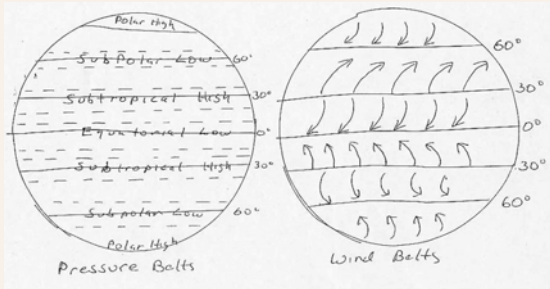 Polar High
Subpolar Low 60°
Subtropical High 30°
Equatorial Low 0°
Subtropical High 30°
Subpolar Low 60°
Polar High
Pressure Belts
60°
30°
0°
30°
60°
Wind Belts